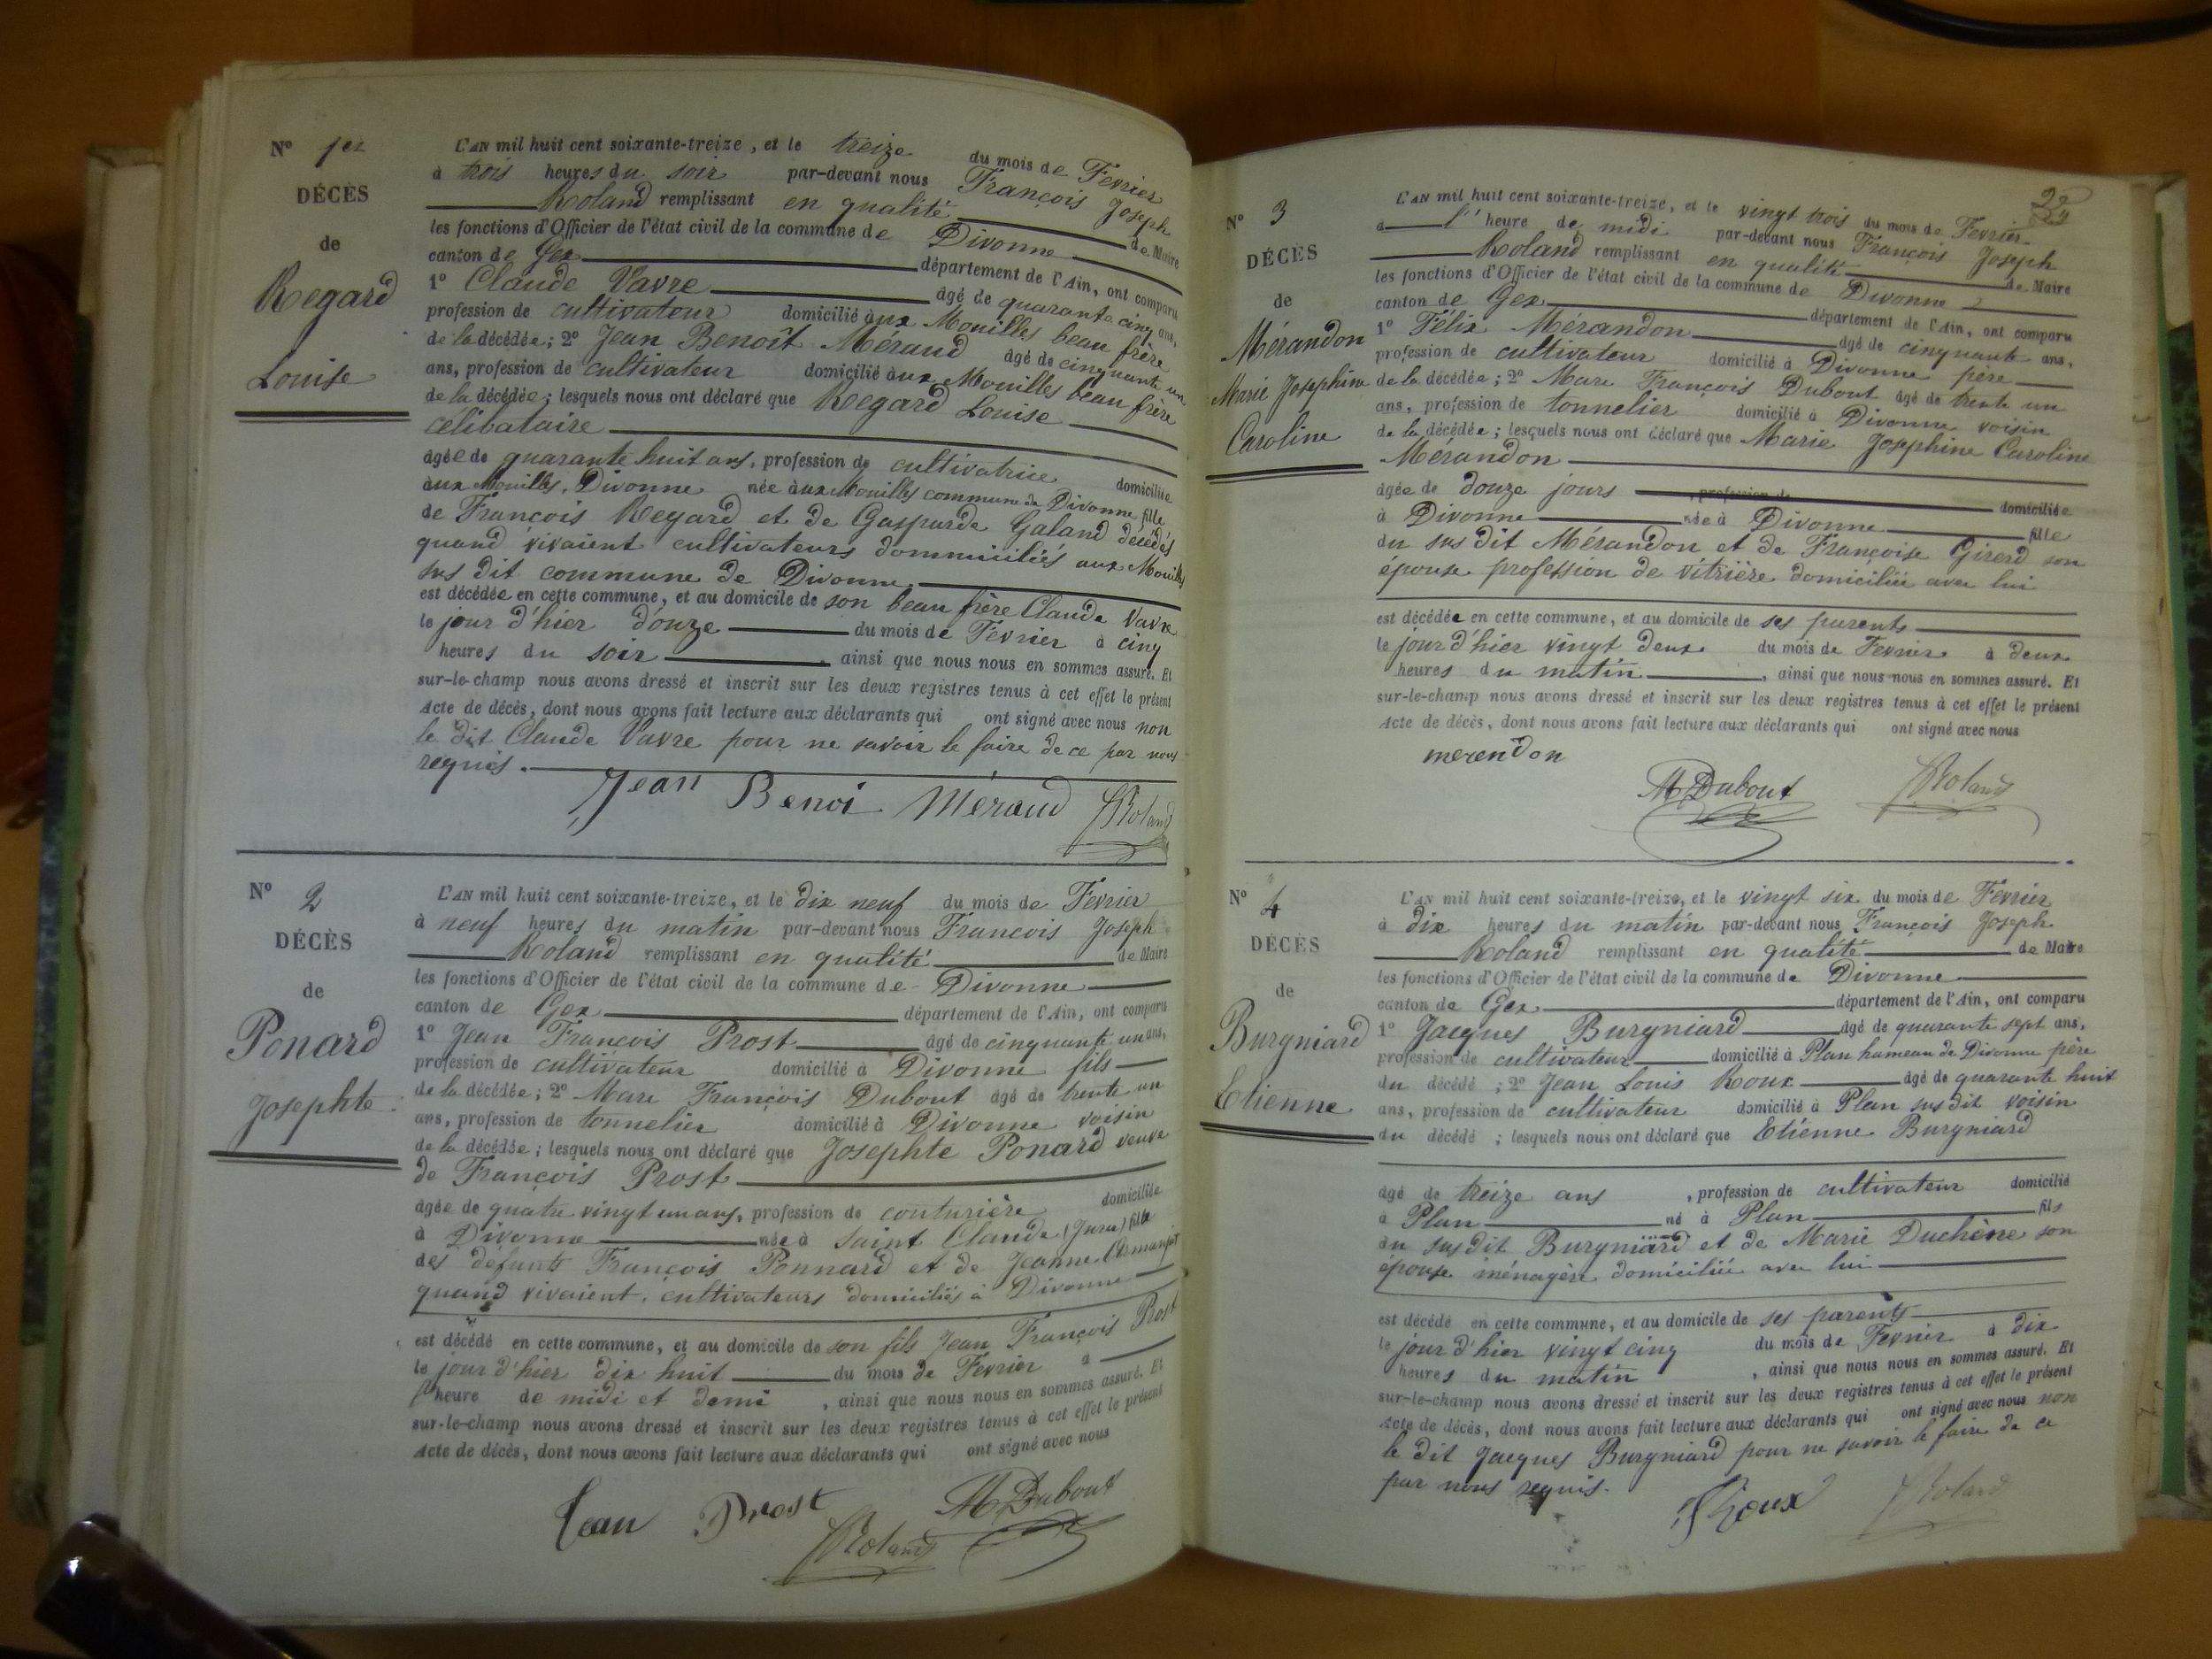 Nº 1er
DÉCÈS
de
Regard
Louise
L'AN mil huit cent soixante-treize, et le treize du mois de Fevrier
à trois heures du soir par-devant nous François Joseph
Roland remplissant en qualité de Maire
les fonctions d'Officier de l'état civil de la commune de Divonne
canton de Gex département de l'Ain, ont comparu
1º Claude Vavre âgé de quarante cinq ans,
profession de cultivateur domicilié aux Mouilles beau frère
de la décédée; 2º Jean Benoît Méraud âgé de cinquante un
ans, profession de cultivateur domicilié aux Mouilles beau frère
de la décédée; lesquels nous ont déclaré que Regard Louise
célibataire
âgée de quarante huit ans, profession de cultivatrice domiciliée
aux Mouilles, Divonne née aux Mouilles commune de Divonne fille
de François Regard et de Gasparde Galand décédés
quand vivaient cultivateurs dommiciliés aux Mouilles
sus dit commune de Divonne
est décédée en cette commune, et au domicile de son beau frère Claude Vavre
le jour d'hier douze du mois de Fevrier à cinq
heures du soir, ainsi que nous nous en sommes assuré. Et
sur-le-champ nous avons dressé et inscrit sur les deux registres tenus à cet effet le présent
Acte de décès, dont nous avons fait lecture aux déclarants qui ont signé avec nous non
le dit Claude Vavre pour ne savoir le faire de ce par nous
requis.
Jean Benoi Méraud FRoland
Nº 2
DÉCÈS
de
Ponard
Josephte
L'AN mil huit cent soixante-treize, et le dix neuf du mois de Fevrier
à neuf heures du matin par-devant nous François Joseph
Roland remplissant en qualité de Maire
les fonctions d'Officier de l'état civil de la commune de Divonne
canton de Gex département de l'Ain, ont comparu
1º Jean François Prost âgé de cinquante un ans,
profession de cultivateur domicilié à Divonne fils
de la décédée; 2º Marc François Dubout âgé de trente un
ans, profession de tonnelier domicilié à Divonne voisin
de la décédée; lesquels nous ont déclaré que Josephte Ponard veuve
de François Prost
âgée de quatre vingt un ans, profession de couturière domiciliée
à Divonne née à Saint Claude (Jura) fille
des défunts François Ponnard et de Jeanne
quand vivaient, cultivateurs domiciliés à Divonne
est décédé en cette commune, et au domicile de son fils Jean François Prost
le jour d'hier dix huit du mois de Fevrier à
l'heure de midi et demi, ainsi que nous nous en sommes assuré. Et
sur-le-champ nous avons dressé et inscrit sur les deux registres tenus à cet effet le présent
Acte de décès, dont nous avons fait lecture aux déclarants qui ont signé avec nous
Jean Prost MDubout
FRoland
22
Nº 3
DÉCÈS
de
Mérandon
Marie Josephine
Caroline
L'AN mil huit cent soixante-treize, et le vingt trois du mois de Fevrier
à l'heure de midi par-devant nous François Joseph
Roland remplissant en qualité de Maire
les fonctions d'Officier de l'état civil de la commune de Divonne
canton de Gex département de l'Ain, ont comparu
1º Félix Mérandon âgé de cinquante ans,
profession de cultivateur domicilié à Divonne père
de la décédée; 2º Marc François Dubout âgé de trente un
ans, profession de tonnelier domicilié à Divonne voisin
de la décédée; lesquels nous ont déclaré que Marie Josephine Caroline
Mérandon
âgée de douze jours, profession de domiciliée
à Divonne née à Divonne fille
du sus dit Mérandon et de Françoise Girerd son
épouse profession de vitrière domiciliée avec lui
est décédée en cette commune, et au domicile de ses parents
le jour d'hier vingt deux du mois de Fevrier à deux
heures du matin, ainsi que nous nous en sommes assuré. Et
sur-le-champ nous avons dressé et inscrit sur les deux registres tenus à cet effet le présent
Acte de décès, dont nous avons fait lecture aux déclarants qui ont signé avec nous
merendon
MDubout FRoland
Nº 4
DÉCÈS
de
Burgniard
Etienne
L'AN mil huit cent soixante-treize, et le vingt six du mois de Fevrier
à dix heures du matin par-devant nous François Joseph
Roland remplissant en qualité de Maire
les fonctions d'Officier de l'état civil de la commune de Divonne
canton de Gex département de l'Ain, ont comparu
1º Jacques Burgniard âgé de quarante sept ans,
profession de cultivateur domicilié à Plan hameau de Divonne père
du décédé; 2º Jean Louis Roux âgé de quarante huit
ans, profession de cultivateur domicilié à Plan sus dit voisin
du décédé; lesquels nous ont déclaré que Etienne Burgniard
âgé de treize ans, profession de cultivateur domicilié
à Plan né à Plan fils
du susdit Burgniard et de Marie Duchène son
épouse ménagère domiciliée avec lui
est décédé en cette commune, et au domicile de ses parents
le jour d'hier vingt cinq du mois de Fevrier à dix
heures du matin, ainsi que nous nous en sommes assuré. Et
sur-le-champ nous avons dressé et inscrit sur les deux registres tenus à cet effet le présent
Acte de décès, dont nous avons fait lecture aux déclarants qui ont signé avec nous non
le dit Jacques Burgniard pour ne savoir le faire de ce
par nous requis.
Roux FRoland